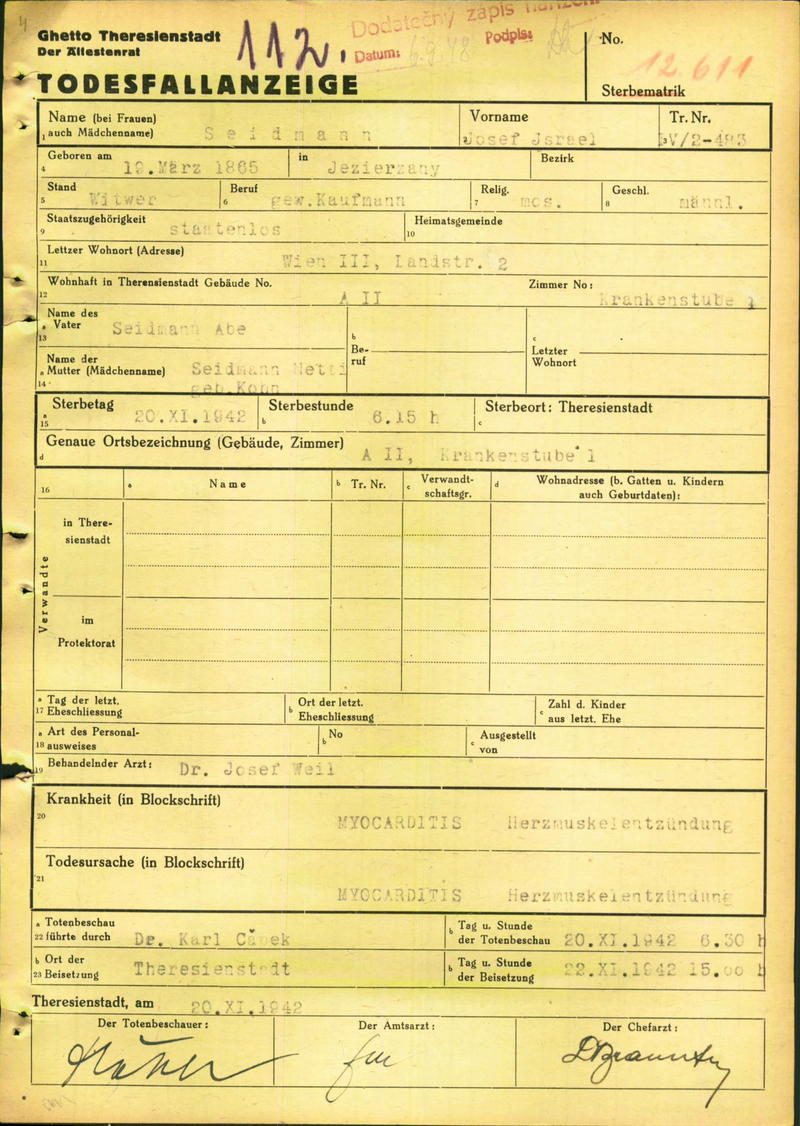 Ghetto Theresienstadt
Der Ältestenrat
TODESFALLANZEIGE
112.
Dodatečný zápis
Datum: 6.9.48
Podpis:
No.
12.611
Sterbematrik
Name (bei Frauen) Vorname Tr. Nr.
1 auch Mädchenname) Seidmann 2 Josef Jsrael 3 IV/2-493
Geboren am in Bezirk
4 19.März 1865 Jezierzany
Stand Beruf Relig. Geschl.
5 Witwer 6 gew.Kaufmann 7 mos. 8 männl.
Staatszugehörigkeit Heimatsgemeinde
9 staatenlos 10
Lettzer Wohnort (Adresse)
11 Wien III, Landstr. 2
Wohnhaft in Therensienstadt Gebäude No. Zimmer No:
12 A II Krankenstube 1
Name des
a Vater Seidmann Abe b c
13
Be-
ruf
Letzter
Wohnort
Name der
a Mutter (Mädchenname) Seidmann Netti
14 geb.Kohn
Sterbetag Sterbestunde Sterbeort: Theresienstadt
a 15 20.XI.1942 b 6.15 h c
Genaue Ortsbezeichnung (Gebäude, Zimmer)
d A II, Krankenstube 1
16 a Name b Tr. Nr. c Verwandt-
schaftsgr.
d Wohnadresse (b. Gatten u. Kindern
auch Geburtdaten):
Verwandte
in There-
sienstadt
im
Protektorat
a Tag der letzt. b Ort der letzt. c Zahl d. Kinder
17 Eheschliessung Eheschliessung aus letzt. Ehe
a Art des Personal- b No c Ausgestellt
18 ausweises von
19 Behandelnder Arzt: Dr. Josef Weil
Krankheit (in Blockschrift)
20 MYOCARDITIS Herzmuskelentzündung
Todesursache (in Blockschrift)
21 MYOCARDITIS Herzmuskelentzündung
a Totenbeschau b Tag u. Stunde
22 führte durch Dr. Karl Čapek der Totenbeschau 20.XI.1942 6.30 h
b Ort der b Tag u. Stunde
23 Beisetzung Theresienstadt der Beisetzung 22.XI.1942 15.00 h
Theresienstadt, am 20.XI.1942
Der Totenbeschauer: Der Amtsarzt: Der Chefarzt: